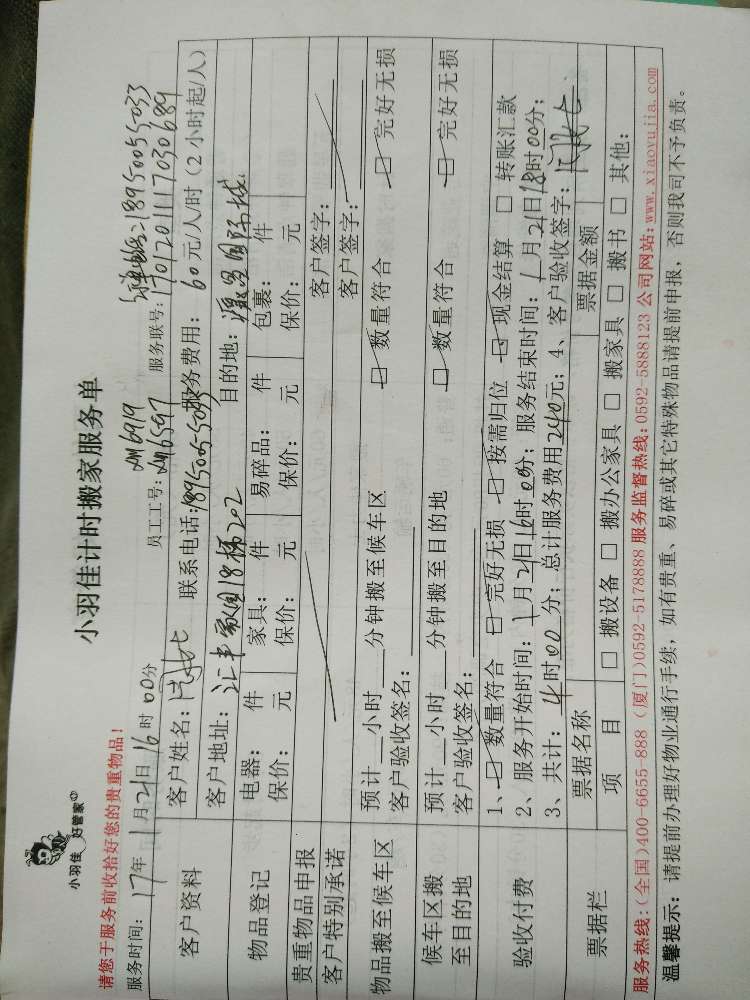 小羽佳 好管家
小羽佳计时搬家服务单
请您于服务前收拾好您的贵重物品!
XM6919
订单电话:18950055033
服务时间: 17年 1月21日16时00分 员工工号: XM6597 服务联号: 1701201117030689
客户资料 客户姓名: 联系电话:18950055033 服务费用: 60元/人/时 (2小时起/人)
客户地址: 汇丰家园18梯202 目的地: 国际城
物品登记 电器: 件 家具: 件 易碎品: 件 包裹: 件
保价: 元 保价: 元 保价: 元 保价: 元
贵重物品申报 客户签字:
客户特别承诺 客户签字:
物品搬至候车区 预计__小时__分钟搬至候车区 □ 数量符合 □ 完好无损
客户验收签名:
候车区搬至目的地 预计__小时__分钟搬至目的地 □ 数量符合 □ 完好无损
客户验收签名:
验收付费 1、□ 数量符合 □ 完好无损 □ 按需归位 □ 现金结算 □ 转账汇款
2、服务开始时间: 1月21日16时00分; 服务结束时间: 1月21日18时00分;
3、共计: 4时00分; 总计服务费用240元; 4、客户验收签字:
票据栏 票据名称 票据金额
项目 □ 搬设备 □ 搬办公家具 □ 搬家具 □ 搬书 □ 其他:
服务热线:(全国)400-6655-888 (厦门)0592-5178888 服务监督热线:0592-5888123 公司网站:www.xiaoyujia.com
温馨提示: 请提前办理好物业通行手续, 如有贵重、易碎或其它特殊物品请提前申报, 否则我司不予负责。